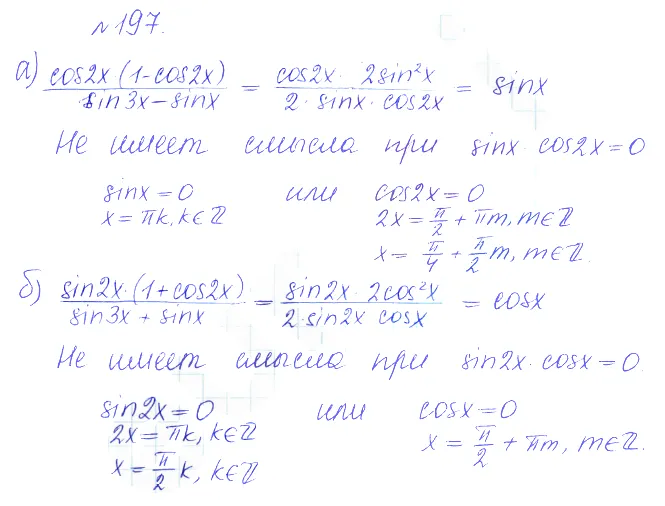 №197.
а) cos2x (1-cos2x) / sin3x - sinx = cos2x · 2sin²x / 2 · sinx · cos2x = sinx
Не имеет смысла при sinx · cos2x = 0
sinx = 0 или cos2x = 0
x = πk, k∈ℤ 2x = π/2 + πm, m∈ℤ
x = π/4 + π/2 m, m∈ℤ.
б) sin2x · (1+cos2x) / sin3x + sinx = sin2x · 2cos²x / 2 · sin2x cosx = cosx
Не имеет смысла при sin2x · cosx = 0
sin2x = 0 или cosx = 0
2x = πk, k∈ℤ x = π/2 + πm, m∈ℤ.
x = π/2 k, k∈ℤ